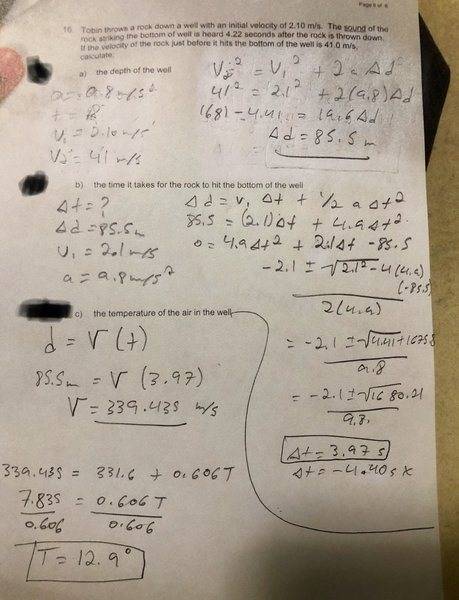 Page 5 of 6
16. Tobin throws a rock down a well with an initial velocity of 2.10 m/s. The sound of the
rock striking the bottom of well is heard 4.22 seconds after the rock is thrown down.
If the velocity of the rock just before it hits the bottom of the well is 41.0 m/s,
calculate:
a) the depth of the well
a = 9.8 m/s²
t = 
V₁ = 2.10 m/s
V₂ = 41 m/s
V₂² = V₁² + 2aΔd
41² = 2.1² + 2(9.8)Δd
1681 - 4.41 = 19.6Δd
Δd = 85.5 m
b) the time it takes for the rock to hit the bottom of the well
Δt = ?
Δd = 85.5m
V₁ = 2.1 m/s
a = 9.8 m/s²
Δd = V₁ Δt + 1/2 a Δt²
85.5 = (2.1)Δt + 4.9Δt²
0 = 4.9Δt² + 2.1Δt - 85.5
-2.1 ± √2.1² - 4(4.9)(-85.5)
2(4.9)
= -2.1 ± √4.41 + 1675.8
9.8
= -2.1 ± √1680.21
9.8
Δt = 3.97 s
Δt = -4.40 s x
c) the temperature of the air in the well
d = V(t)
85.5m = V (3.97)
V = 339.435 m/s
339.435 = 331.6 + 0.606T
7.835 = 0.606T
0.606 0.606
T = 12.9°